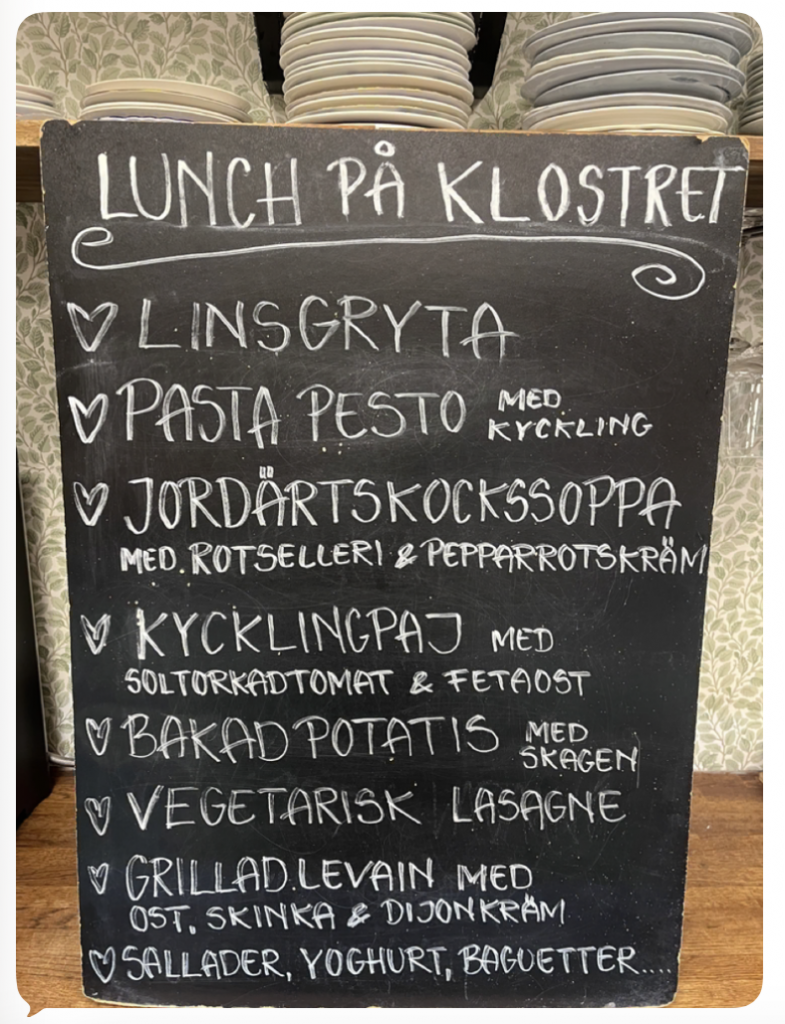 LUNCH PÅ KLOSTRET
LINSGRYTA
PASTA PESTO MED
KYCKLING
JORDÄRTSKOCKSSOPPA
MED. ROTSELLERI & PEPPARROTSKRÄM
KYCKLINGPAJ MED
SOLTORKADTOMAT & FETAOST
BAKAD POTATIS MED
SKAGEN
VEGETARISK LASAGNE
GRILLAD. LEVAIN MED
OST, SKINKA & DIJONKRÄM
SALLADER, YOGHURT, BAGUETTER....